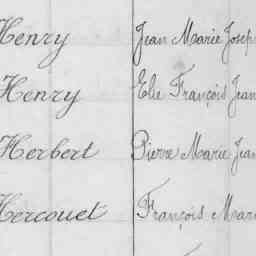 Henry Jean Marie Joseph
Henry Elie François Jean
Herbert Pierre Marie Jean
Hercouet François Mari